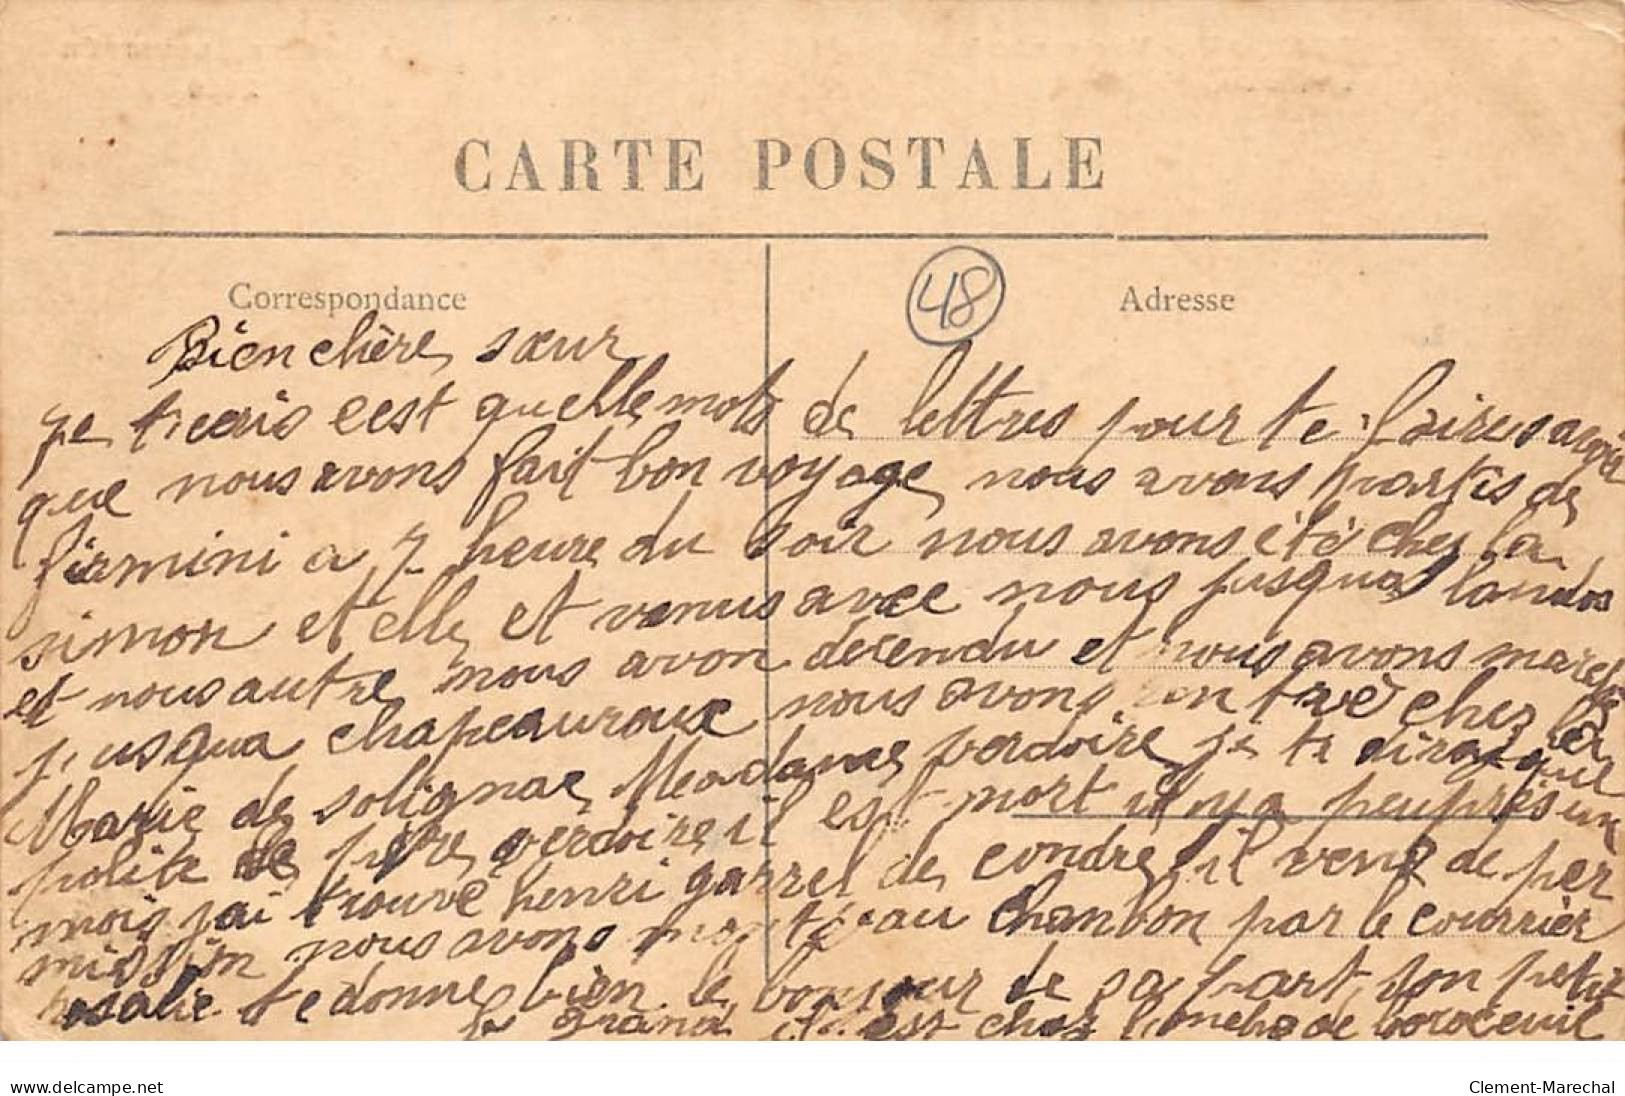 CARTE POSTALE
48
Correspondance
Adresse
Bien chère sœur
je cest quelle mots de lettres pour te faire savoir
que nous avons fait bon voyage nous avons partis de
firmini a 7 heure du soir nous avons été chez la
simon et elle et venus avec nous jusqua landos
et nous autre nous avon désendu et nous avons marché
jusqua chapeauroux nous avons entré chez la
Marie de solignac Madame verdoire je te dirai que
polite de père verdoire il est mort il y a peuprés un
mois jai trouvé henri garrel de condre il vens de per
mission nous avons monté au chambon par le courrièr
rosalie te donne bien le bonjour de sa part son petit
le grand est chez
delcampe.net
Clement-Marechal